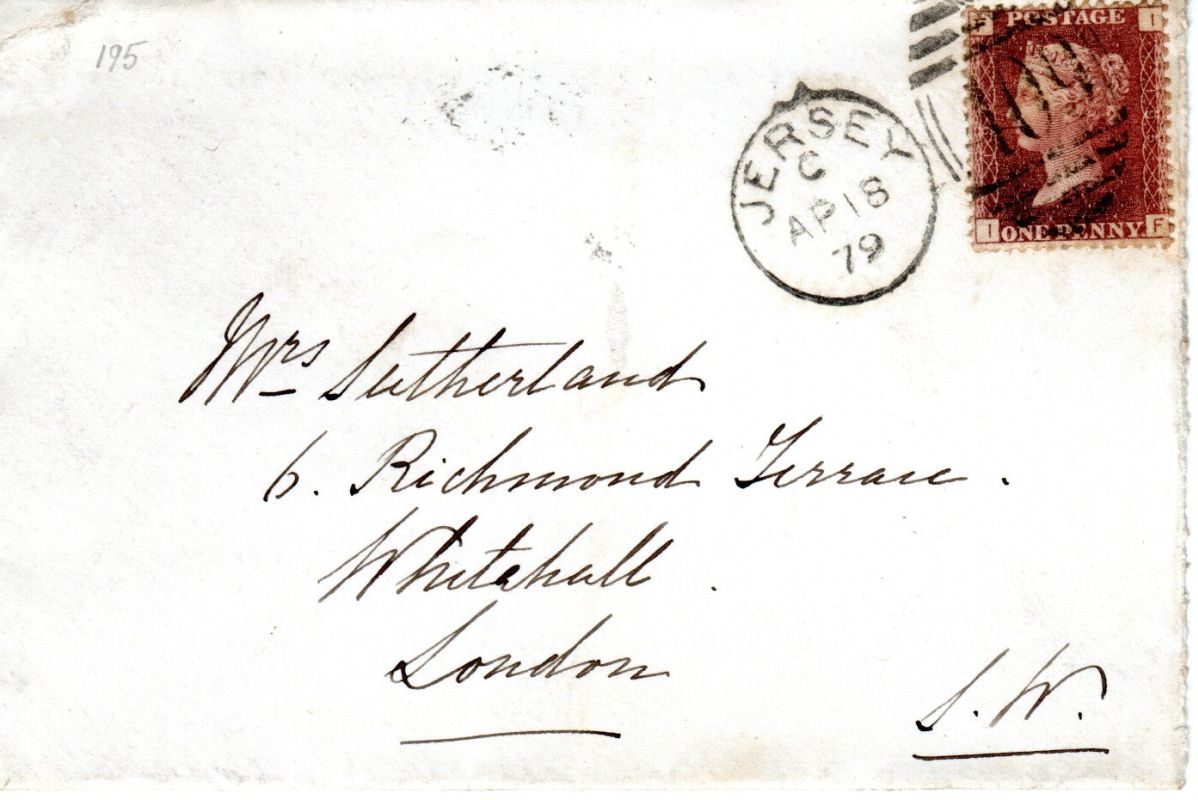 195
F POSTAGE I
409
I ONE PENNY F
JERSEY
C
AP 18
79
Mrs Sutherland
6. Richmond Terrace.
Whitehall.
London
S.W.